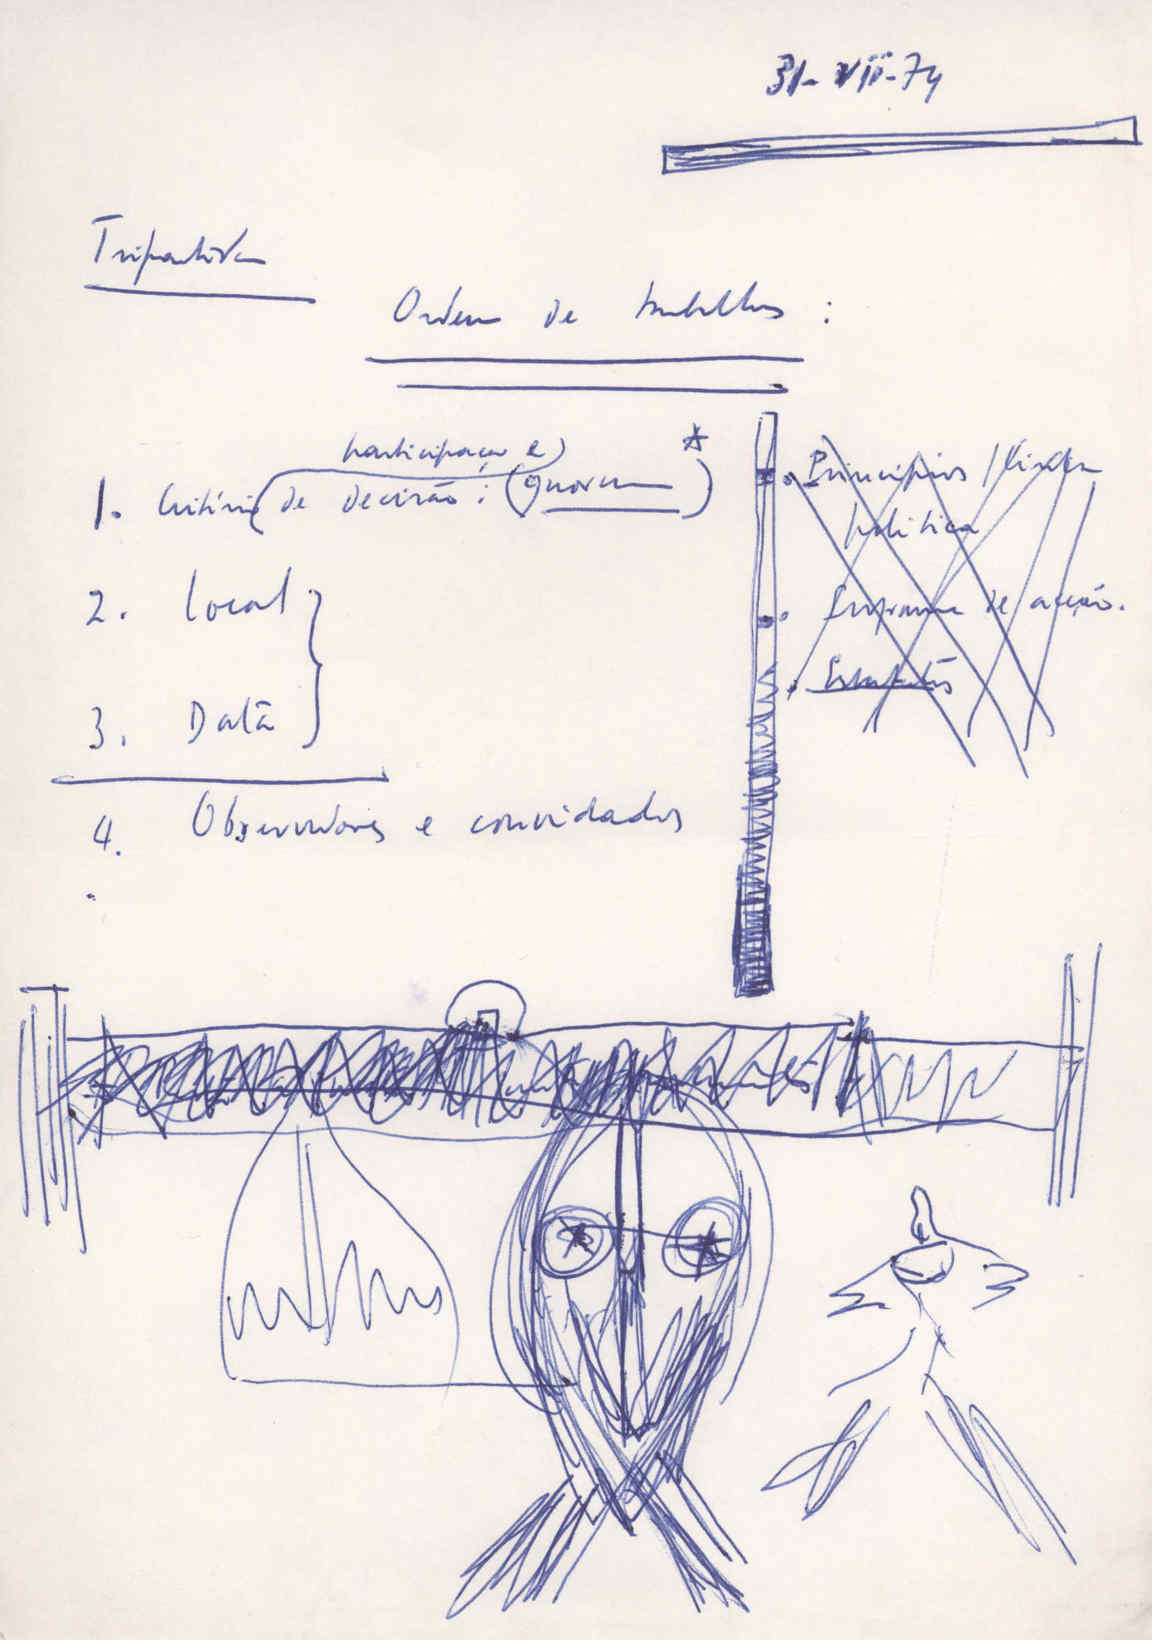 31-VII-74
Tripartida
Ordem de trabalhos :
participação e
1. Critério de decisão : (quorum) *
2. Local
3. Data
4. Observadores e convidados
Princípios /
política
Programa de acção.
Estatutos